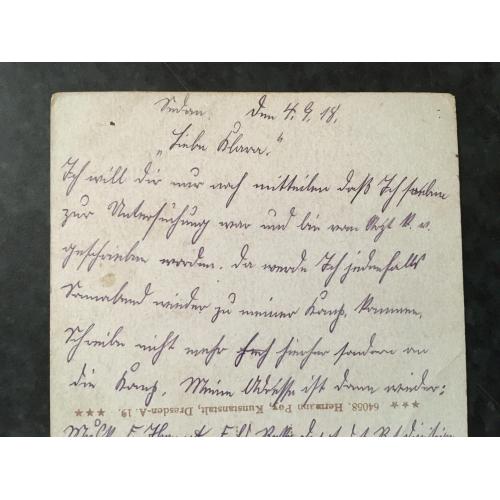 Sedan. Den 4.9.18.
„Liebe Klara."
Ich will dir nur noch mitteilen daß Ich soeben
zur Untersuchung war und bin vom Arzt K. v.
geschrieben worden. Da werde Ich jedenfalls
Sonnabend wieder zu meiner Komp. kommen.
Schreibe nicht mehr hierher sondern an
die Komp. Meine Adresse ist dann wieder:
64058. Hermann Poy, Kunstanstalt, Dresden-A. 19.